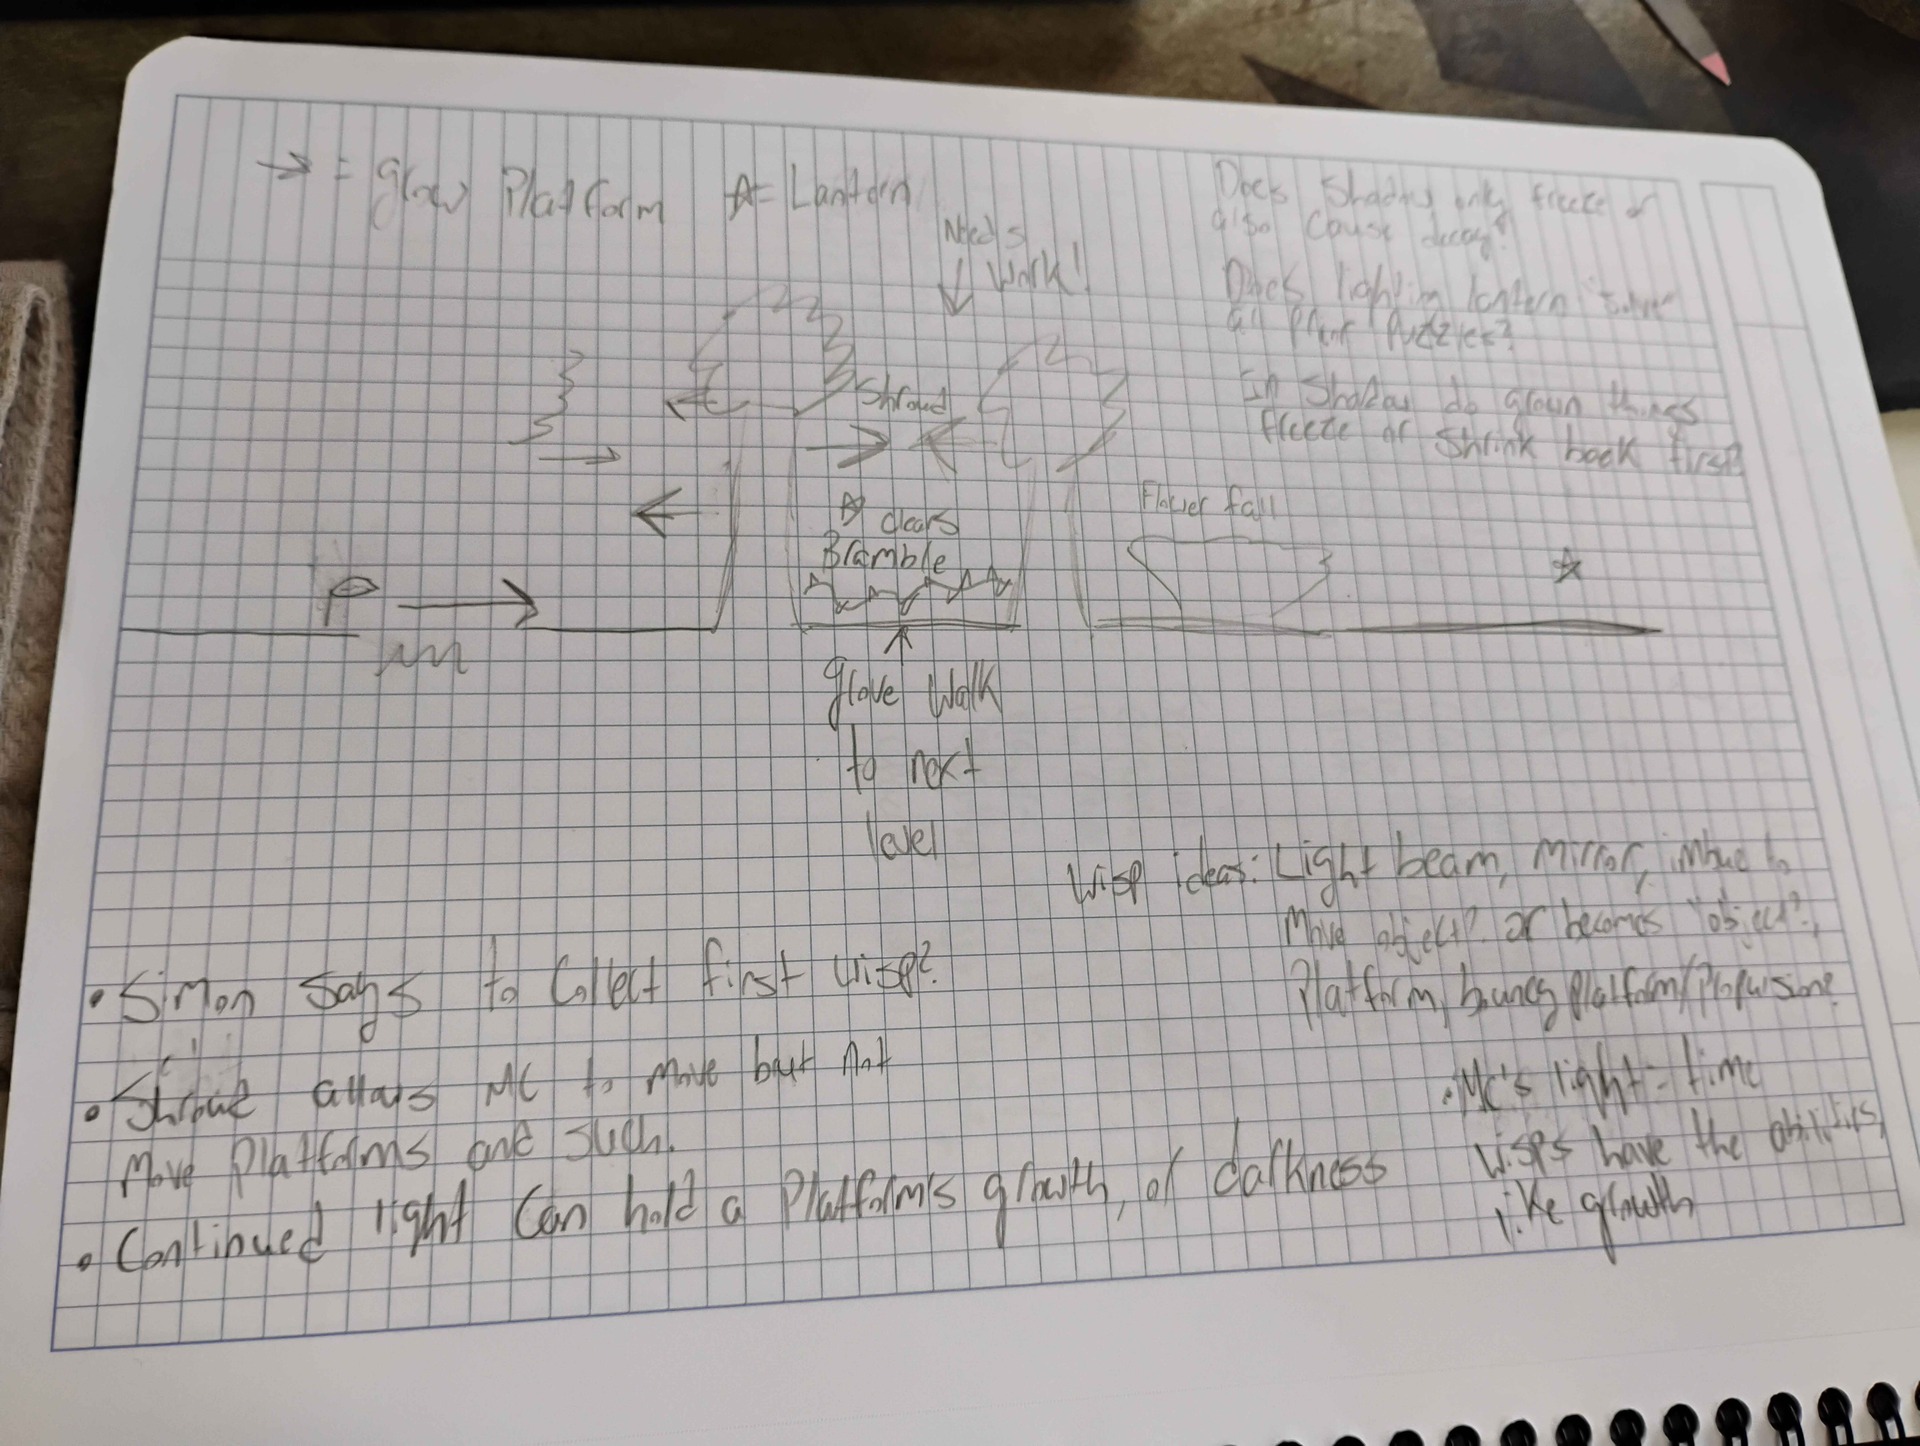 → = grow Platform ☆= Lantern
Needs
work!
Does Shadow only freeze or
also cause decay?
Does lighting lantern "solve"
all Plant Puzzles?
In Shadow do grown things
freeze or shrink back first?
Shroud
☆ clears
Bramble
Flower fall
☆
grove walk
to next
level
Wisp ideas: Light beam, mirror, imbue to
Move object? or becomes "object?",
Platform, bouncy platform/Propulsion?
• Simon Says to Collect first wisp?
• Shroud allows MC to move but not
Move Platforms and such.
• Continued light can hold a Platform's growth, or darkness
• MC's light = time
Wisps have the abilities,
like growth